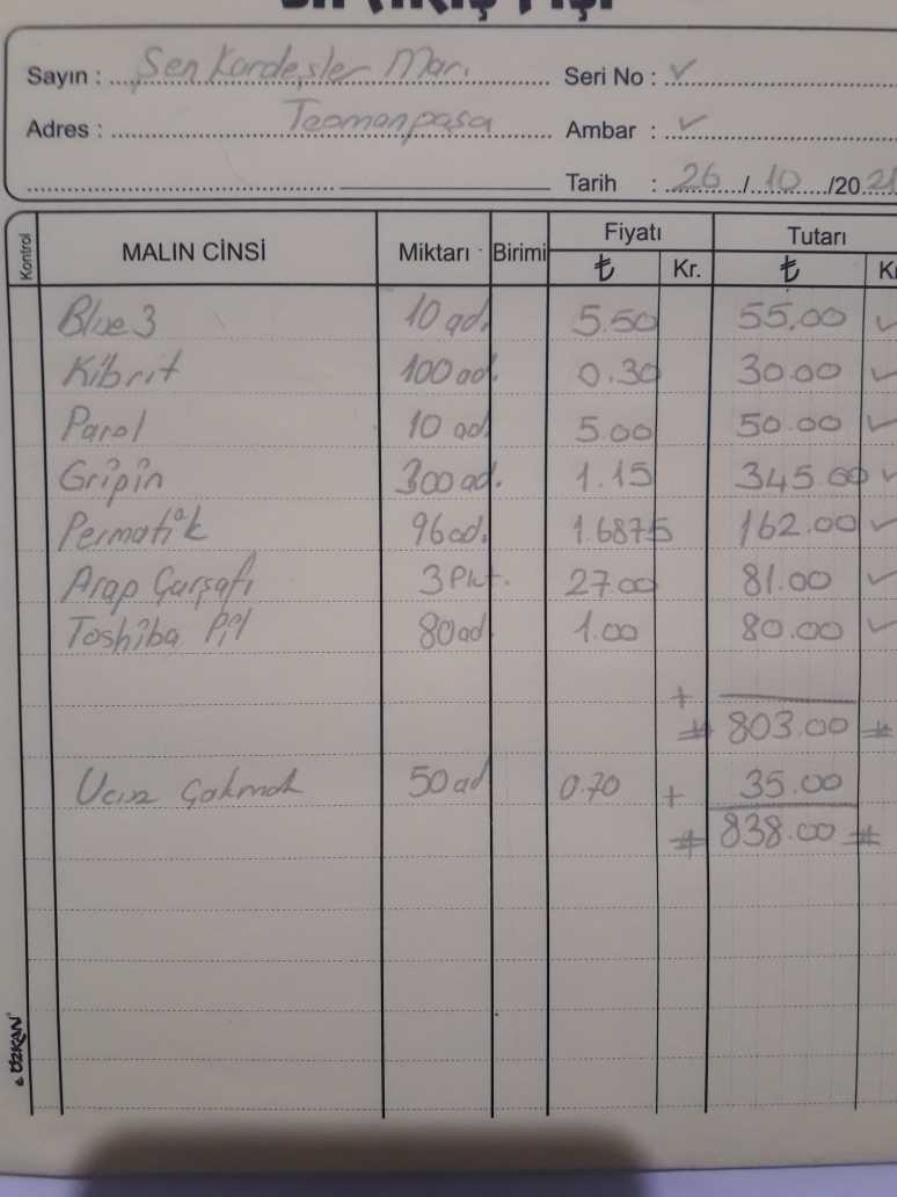 Sayın : Şen Kardeşler Mar. Seri No : ✓
Adres : Teomanpaşa Ambar : ✓
Tarih : 26/10/2021
Kontrol MALIN CİNSİ Miktarı Birimi Fiyatı ₺ Kr. Tutarı ₺
Blue 3 10 ad. 5.50 55.00 ✓
Kibrit 100 ad. 0.30 30.00 ✓
Parol 10 ad. 5.00 50.00 ✓
Gripin 300 ad. 1.15 345.00 ✓
Permatik 96 ad. 1.6875 162.00 ✓
Arap Çarşafı 3 Pkt. 27.00 81.00 ✓
Toshiba Pil 80 ad 1.00 80.00 ✓
+
# 803.00 #
Ucuz Çakmak 50 ad 0.70 + 35.00
# 838.00 #
ÖZKAN